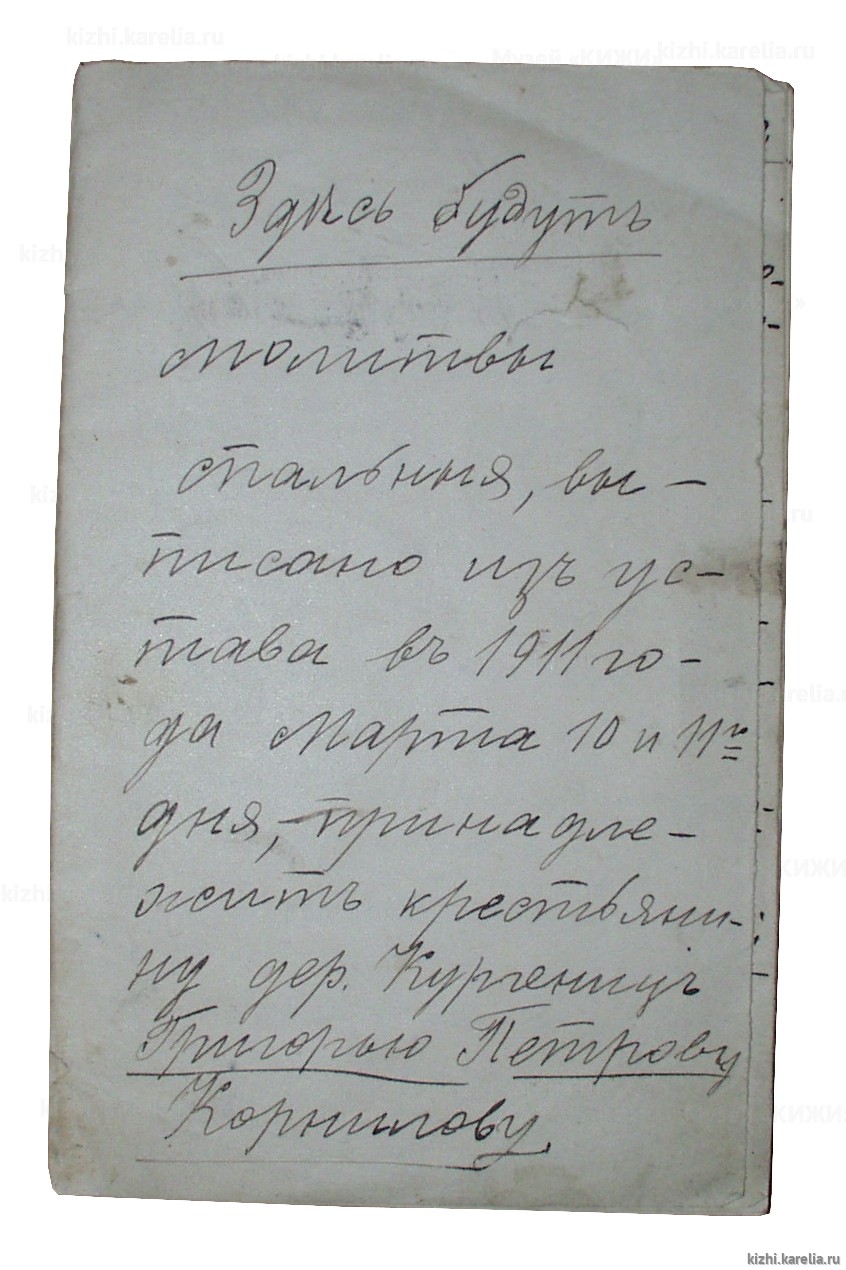 kizhi.karelia.ru
kizhi.karelia.ru
Здѣсь будутъ
молитвы
спальныя, вы-
писано изъ ус-
тава въ 1911 го-
да Марта 10 и 11го
дня, принадле-
житъ крестьяни-
ну дер. Кургеницъ
Григорью Петрову
Корнилову
kizhi.karelia.ru